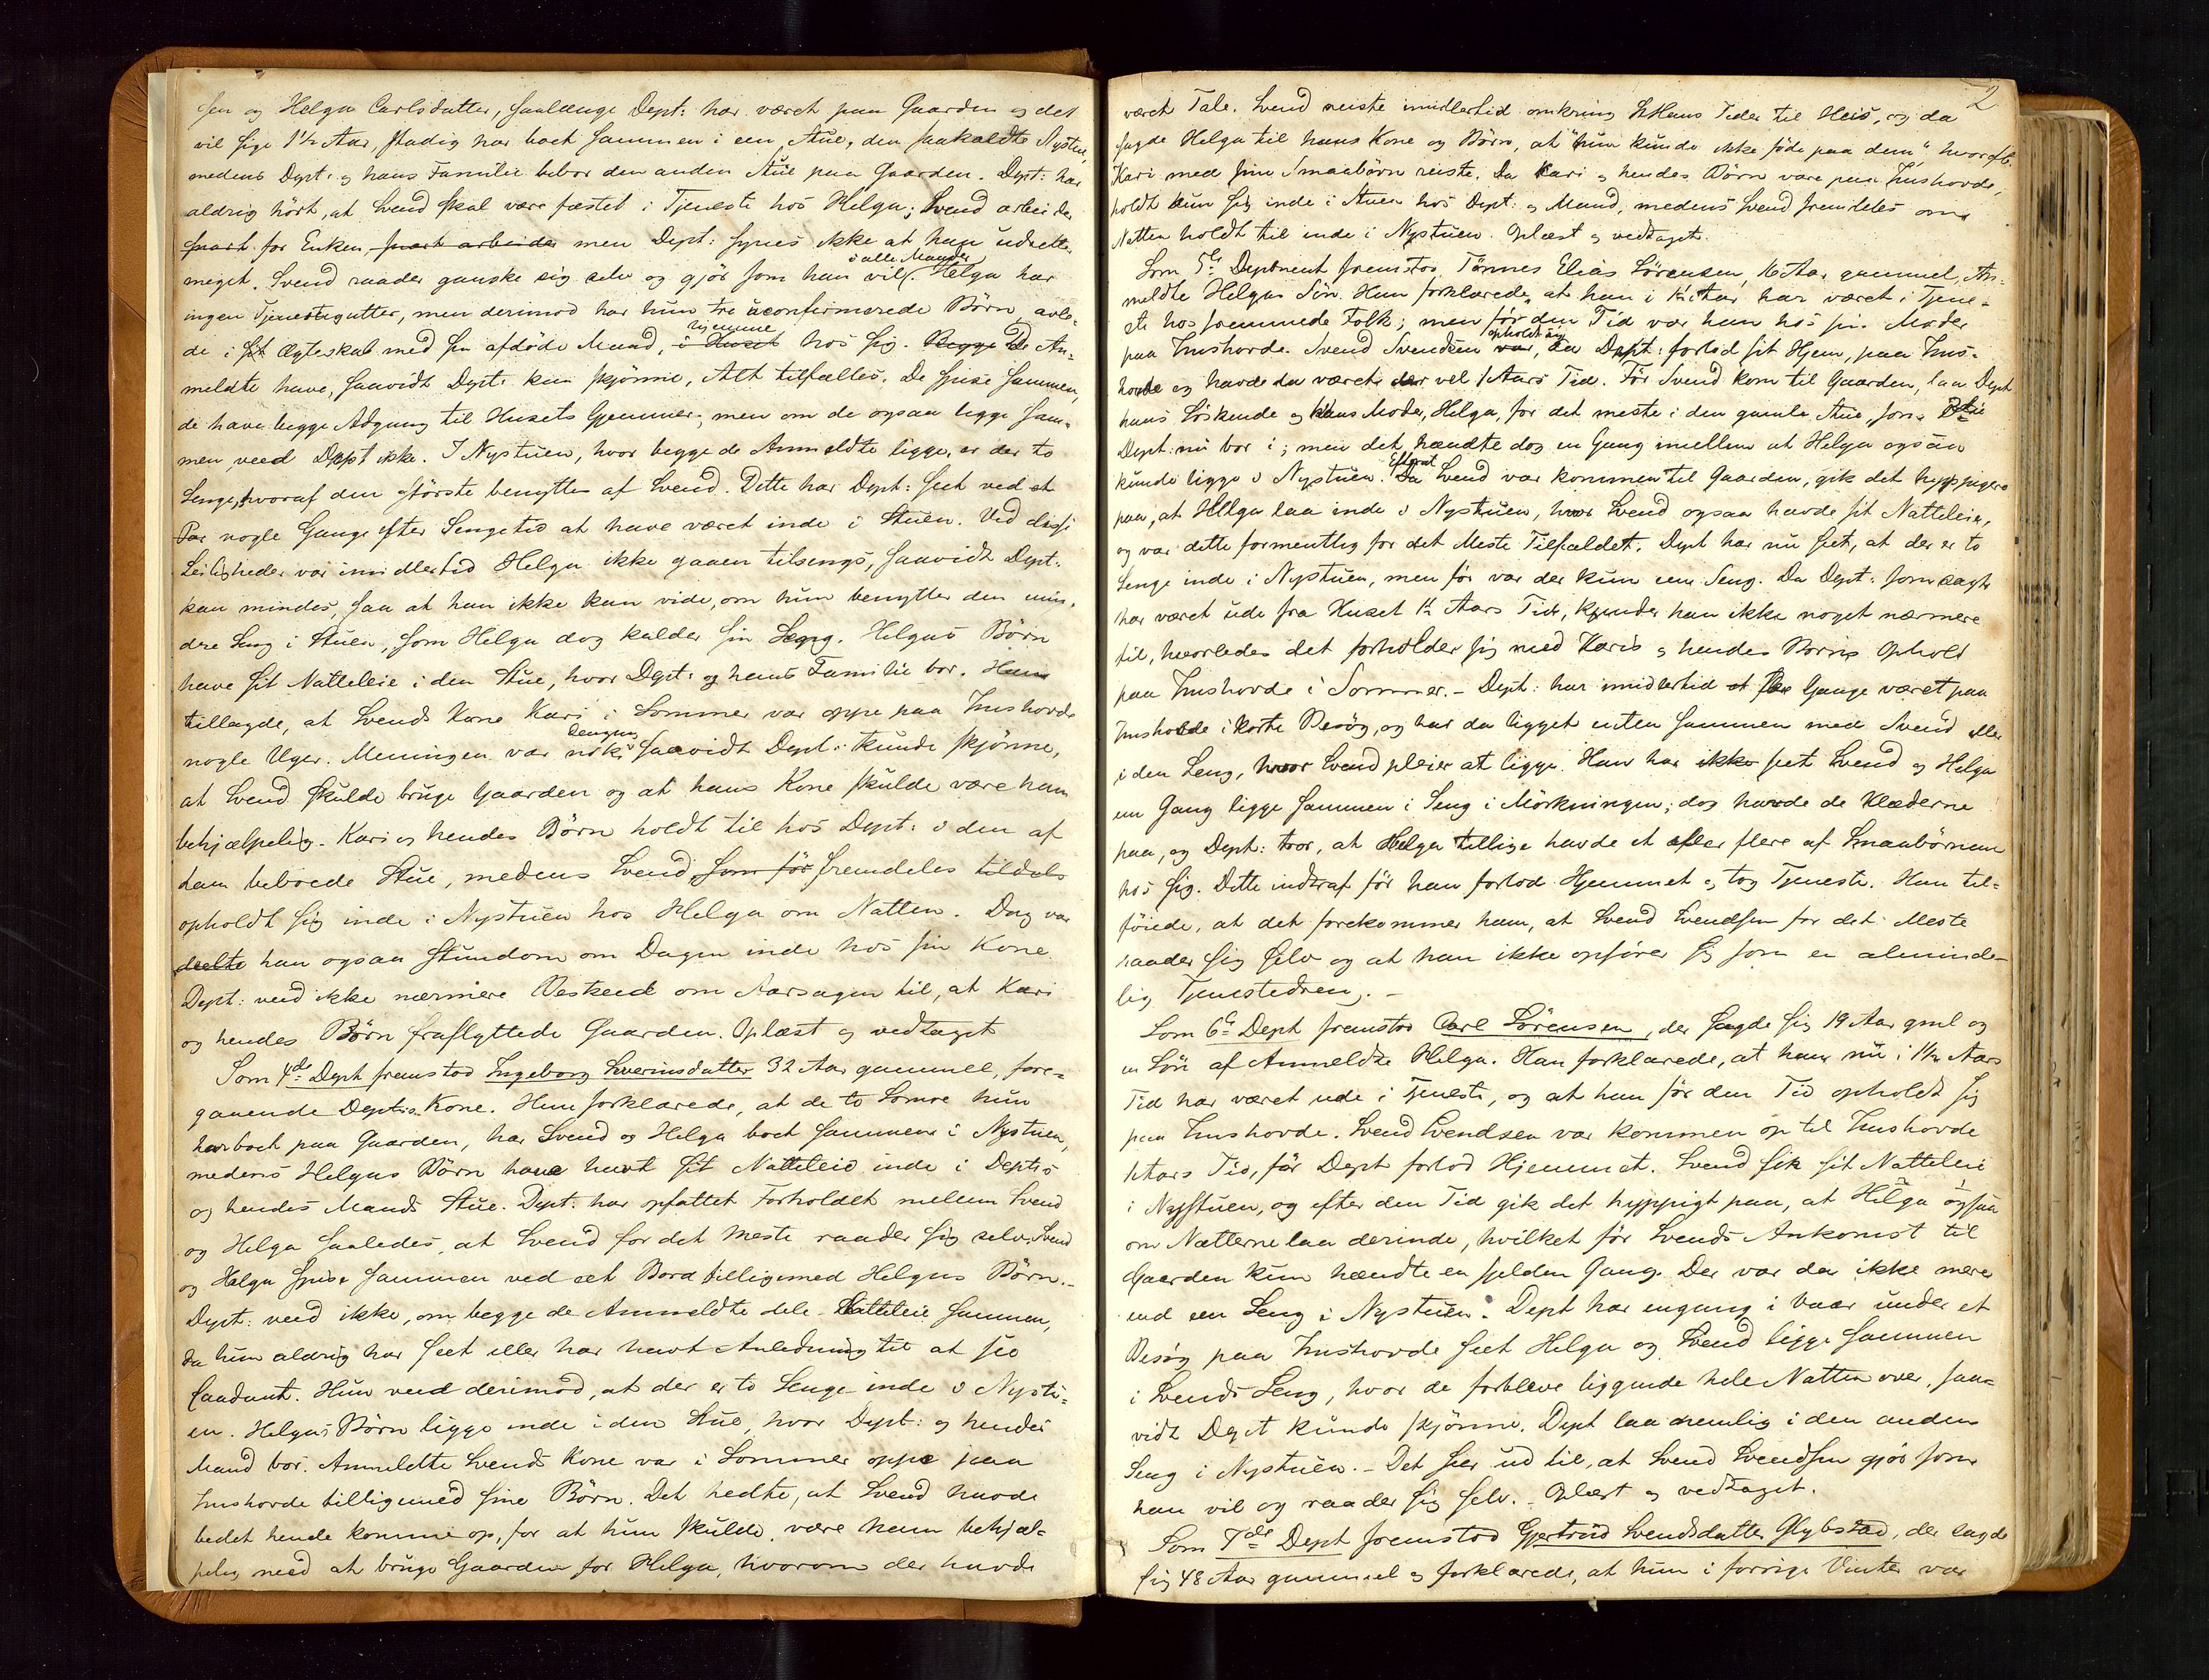 sen og Helga Carlsdatter, saalænge Dept: har været paa Gaarden og det
vil sige 1½ Aar, stadig har boet sammen i een Stue, den saakaldte Nystue,
medens Dept: og hans Familie bebor den anden Stue paa Gaarden. Dept: har
aldrig hørt, at Svend skal være fæstet i Tjeneste hos Helga; Svend arbeider
snart for Enken snart arbeider men Dept: synes ikke at han udretter
meget. Svend raader ganske sig selv og gjør som han vil i alle Maader. Helga har
ingen Tjenestegutter, men derimod har hun tre uconfirmerede Børn, avle-
de i sit Ægteskab med sin afdøde Mand, i Huset hjemme hos sig. Begge De An-
meldte have, saavidt Dept: kan skjønne, Alt tilfælles. De spise sammen,
de have begge Adgang til Husets Gjemmer; men om de ogsaa ligge sam-
men, veed Dept ikke. I Nystuen, hvor begge de Anmeldte ligge, er der to
Senge, hvoraf den største benyttes af Svend. Dette har Dept: seet ved et
Par nogle Gange efter Sengetid at have været inde i Stuen. Ved disse
Leiligheder var imidlertid Helga ikke gaaen tilsengs, saavidt Dept:
kan mindes, saa at han ikke kan vide, om hun benytter den min-
dre Seng i Stuen, som Helga dog kalder sin Seng. Helgas Børn
have sit Natteleie i den Stue, hvor Dept: og hans Familie bor. Han
tillagde, at Svends Kone Kari i Sommer var oppe paa Hushovde
nogle Uger. Meningen var nok dengang, saavidt Dept: kunde skjønne,
at Svend skulde bruge Gaarden og at hans Kone skulde være ham
behjælpelig. Kari og hendes Børn holdt til hos Dept: i den af
ham beboede Stue, medens Svend som før fremdeles tildels
opholdt sig inde i Nystuen hos Helga om Natten. Dog var
deelte han ogsaa stundom om Dagen inde hos sin Kone.
Dept: veed ikke nærmere Beskeed om Aarsagen til, at Kari
og hendes Børn fraflyttede Gaarden. Oplæst og vedtaget
Som 4de Dept fremstod Ingeborg Sverinsdatter 32 Aar gammel, fore-
gaaende Deptis Kone. Hun forklarede, at de to Somre hun
har boet paa Gaarden, har Svend og Helga boet sammen i Nystuen,
medens Helgas Børn have havt sit Natteleie inde i Deptis
og hendes Mands Stue. Dept: har opfattet Forholdet mellem Svend
og Helga saaledes, at Svend for det meste raader sig selv. Svend
og Helga spise sammen ved eet Bord tilligemed Helgas Børn.-
Dept: veed ikke, om begge de Anmeldte dele Natteleie sammen,
da hun aldrig har seet eller har havt Anledning til at see
saadant. Hun veed derimod, at der er to Senge inde i Nystu-
en. Helgas Børn ligge inde i den Stue, hvor Dept: og hendes
Mand bor. Anmeldte Svends Kone var i Sommer oppe paa
Hushovde tilligemed sine Børn. Det hedte, at Svend havde
bedet hende komme op, for at hun skulde være ham behjæl-
pelig med at bruge Gaarden for Helga, hvorom der havde
2
været Tale. Svend reiste imidlertid omkring St Hans Tider til Heis, og da
sagde Helga til hans Kone og Børn, at "hun kunde ikke føde paa dem", hvorefter
Kari med sine Smaabørn reiste. Da Kari og hendes Børn vare paa Hushovde,
holdt hun sig inde i Stuen hos Dept: og Mand, medens Svend fremdeles om
Natten holdt til inde i Nystuen. Oplæst og vedtaget.
Som 5te Deponent fremstod Tønnes Elias Sørensen, 16 Aar gammel, An-
meldte Helgas Søn. Han forklarede, at han i 1½ Aar har været i Tjene-
ste hos fremmede Folk; men før den Tid var han hos sin Moder
paa Hushovde. Svend Svendsen var opholdt sig, da Dept: forlod sit Hjem, paa Hus-
hovde og havde da været der vel 1 Aars Tid. Før Svend kom til Gaarden, laa Dept
hans Søskende og hans Moder, Helga, for det meste i den gamle Stue, som
Dept: nu bor i; men det hændte dog en Gang imellem at Helga ogsaa
kunde ligge i Nystuen. Da Efterat Svend var kommen til Gaarden, gik det hyppigere
paa, at Helga laa inde i Nystuen, hvor Svend ogsaa havde sit Natteleie,
og var dette formentlig for det Meste Tilfældet. Dept har nu seet, at der er to
Senge inde i Nystuen, men før var der kun een Seng. Da Dept: som sagt
har været ude fra Huset 1½ Aars Tid, kjender han ikke noget nærmere
til, hvorledes det forholder sig med Karis og hendes Børns Ophold
paa Hushovde i Sommer. - Dept: har imidlertid et Par Gange været paa
Hushovde i korte Besøg, og har da ligget enten sammen med Svend eller
i den Seng, hvor Svend pleier at ligge. Han har ikke seet Svend og Helga
en Gang ligge sammen i Seng i Mørkningen; dog havde de Klæderne
paa, og Dept: tror, at Helga tillige havde et eller flere af Smaabørnene
hos sig. Dette indtraf før han forlod Hjemmet og tog Tjeneste. Han til-
føiede, at det forekommer ham, at Svend Svendsen for det Meste
raader sig selv og at han ikke opfører sig som en alminde-
lig Tjenestedreng. -
Som 6te Dept fremstod Carl Sørensen, der sagde sig 19 Aar gml og
en Søn af Anmeldte Helga. Han forklarede, at han nu i 1½ Aars
Tid har været ude i Tjeneste, og at han før den Tid opholdt sig
paa Hushovde. Svend Svendsen var kommen op til Hushovde
1 Aars Tid, før Dept forlod Hjemmet. Svend fik sit Natteleie
i Nystuen, og efter den Tid gik det hyppigt paa, at Helga ogsaa
om Nætterne laa derinde, hvilket før Svends Ankomst til
Gaarden kun hændte en sjelden Gang. Der var da ikke mere
end een Seng i Nystuen. Dept har engang i Vaar under et
Besøg paa Hushovde seet Helga og Svend ligge sammen
i Svends Seng, hvor de forbleve liggende hele Natten over, saa-
vidt Dept kunde skjønne. Dept laa nemlig i den anden
Seng i Nystuen. - Det seer ud til, at Svend Svendsen gjør som
han vil og raader sig selv. - Oplæst og vedtaget.
Som 7de Dept fremstod Gjertrud Svendsdatter Glybstad, der sagde
sig 48 Aar gammel og forklarede, at hun i forrige Vinter var